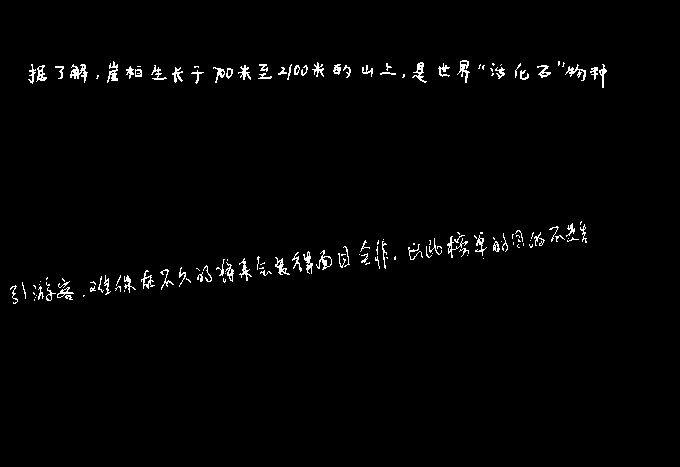 据了解，崖柏生长于700米至2100米的山上，是世界“活化石”物种
引游客，难保在不久的将来会变得面目全非。出此榜单的目的不是告